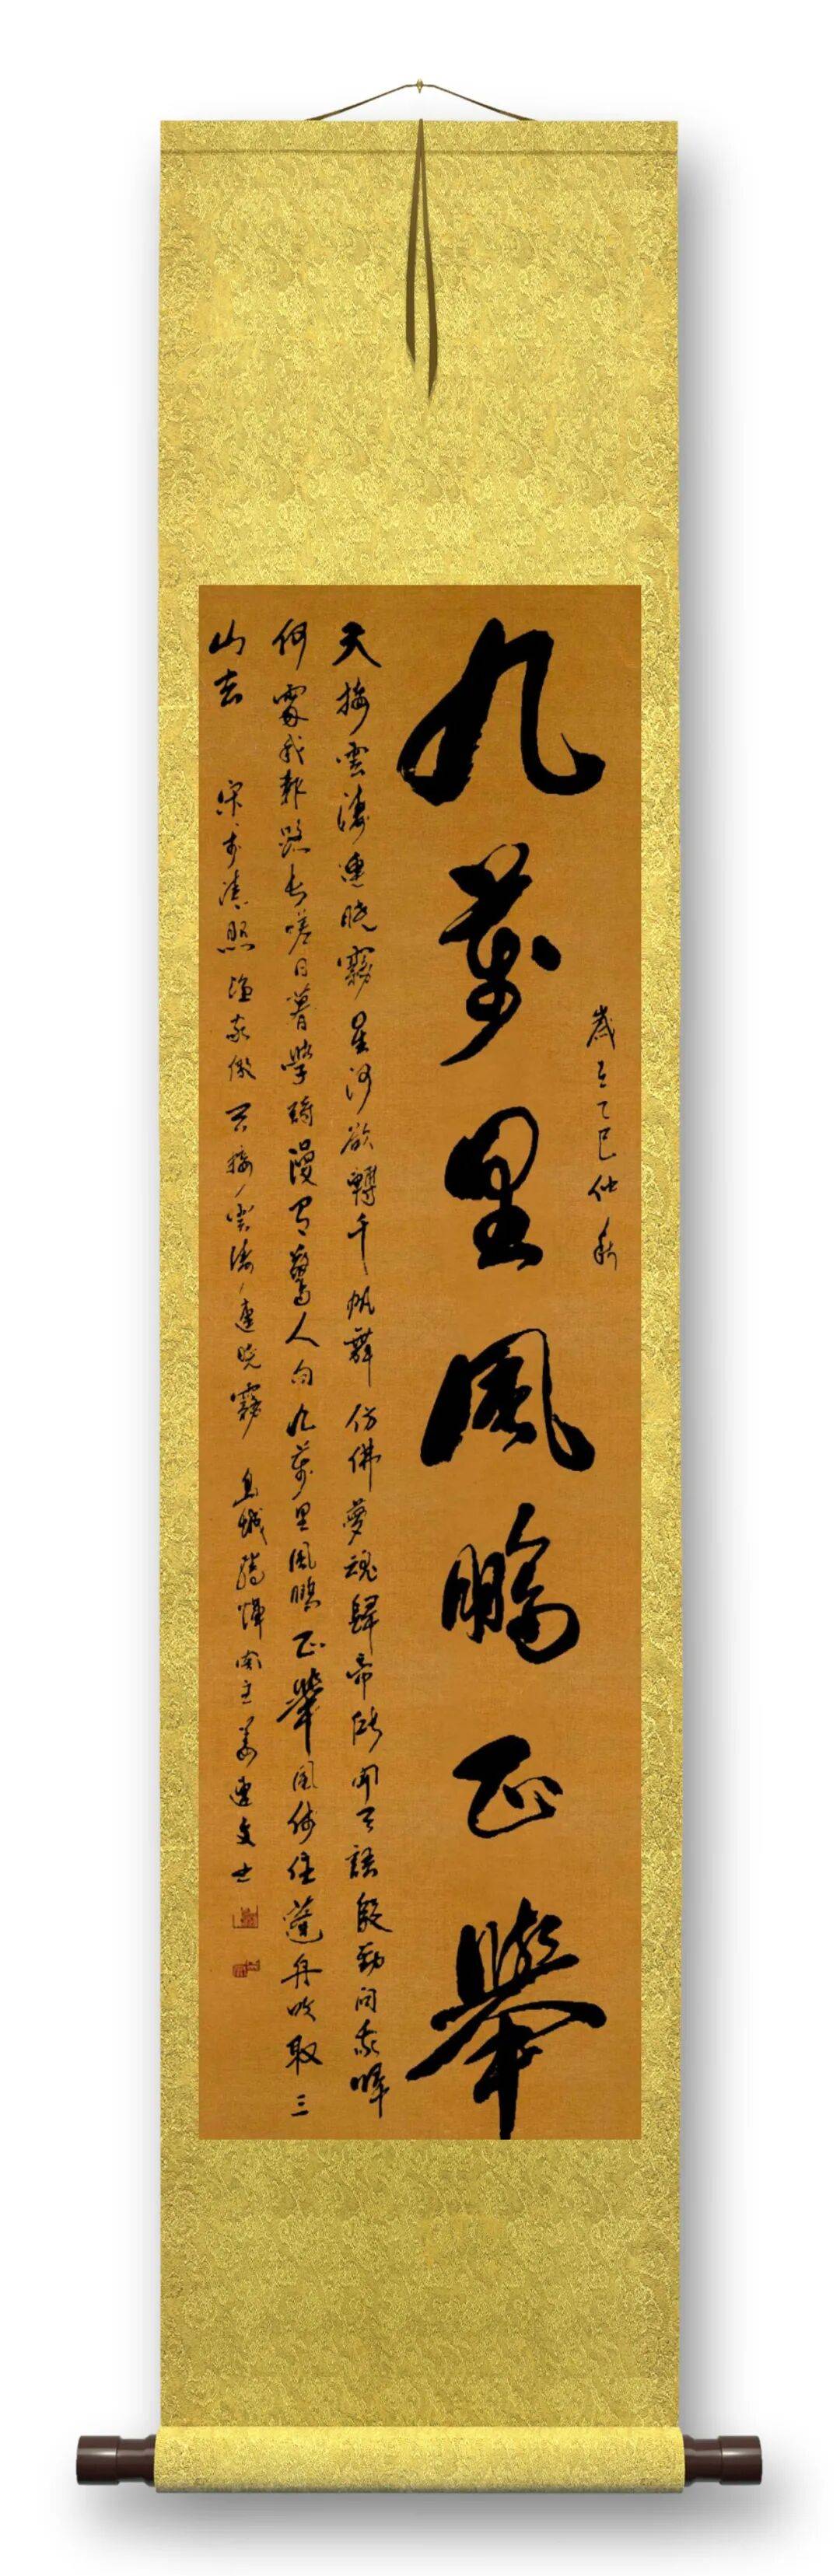 歲在乙巳仲秋
九萬里風鵬正舉
天接雲濤連曉霧星河欲轉千帆舞仿佛夢魂歸帝所聞天語殷勤問我歸
何處我報路長嗟日暮學詩漫有驚人句九萬里風鵬正舉風休住蓬舟吹取三
山去 宋李清照漁家傲天接雲濤連曉霧 腾輝閣主姜連文書